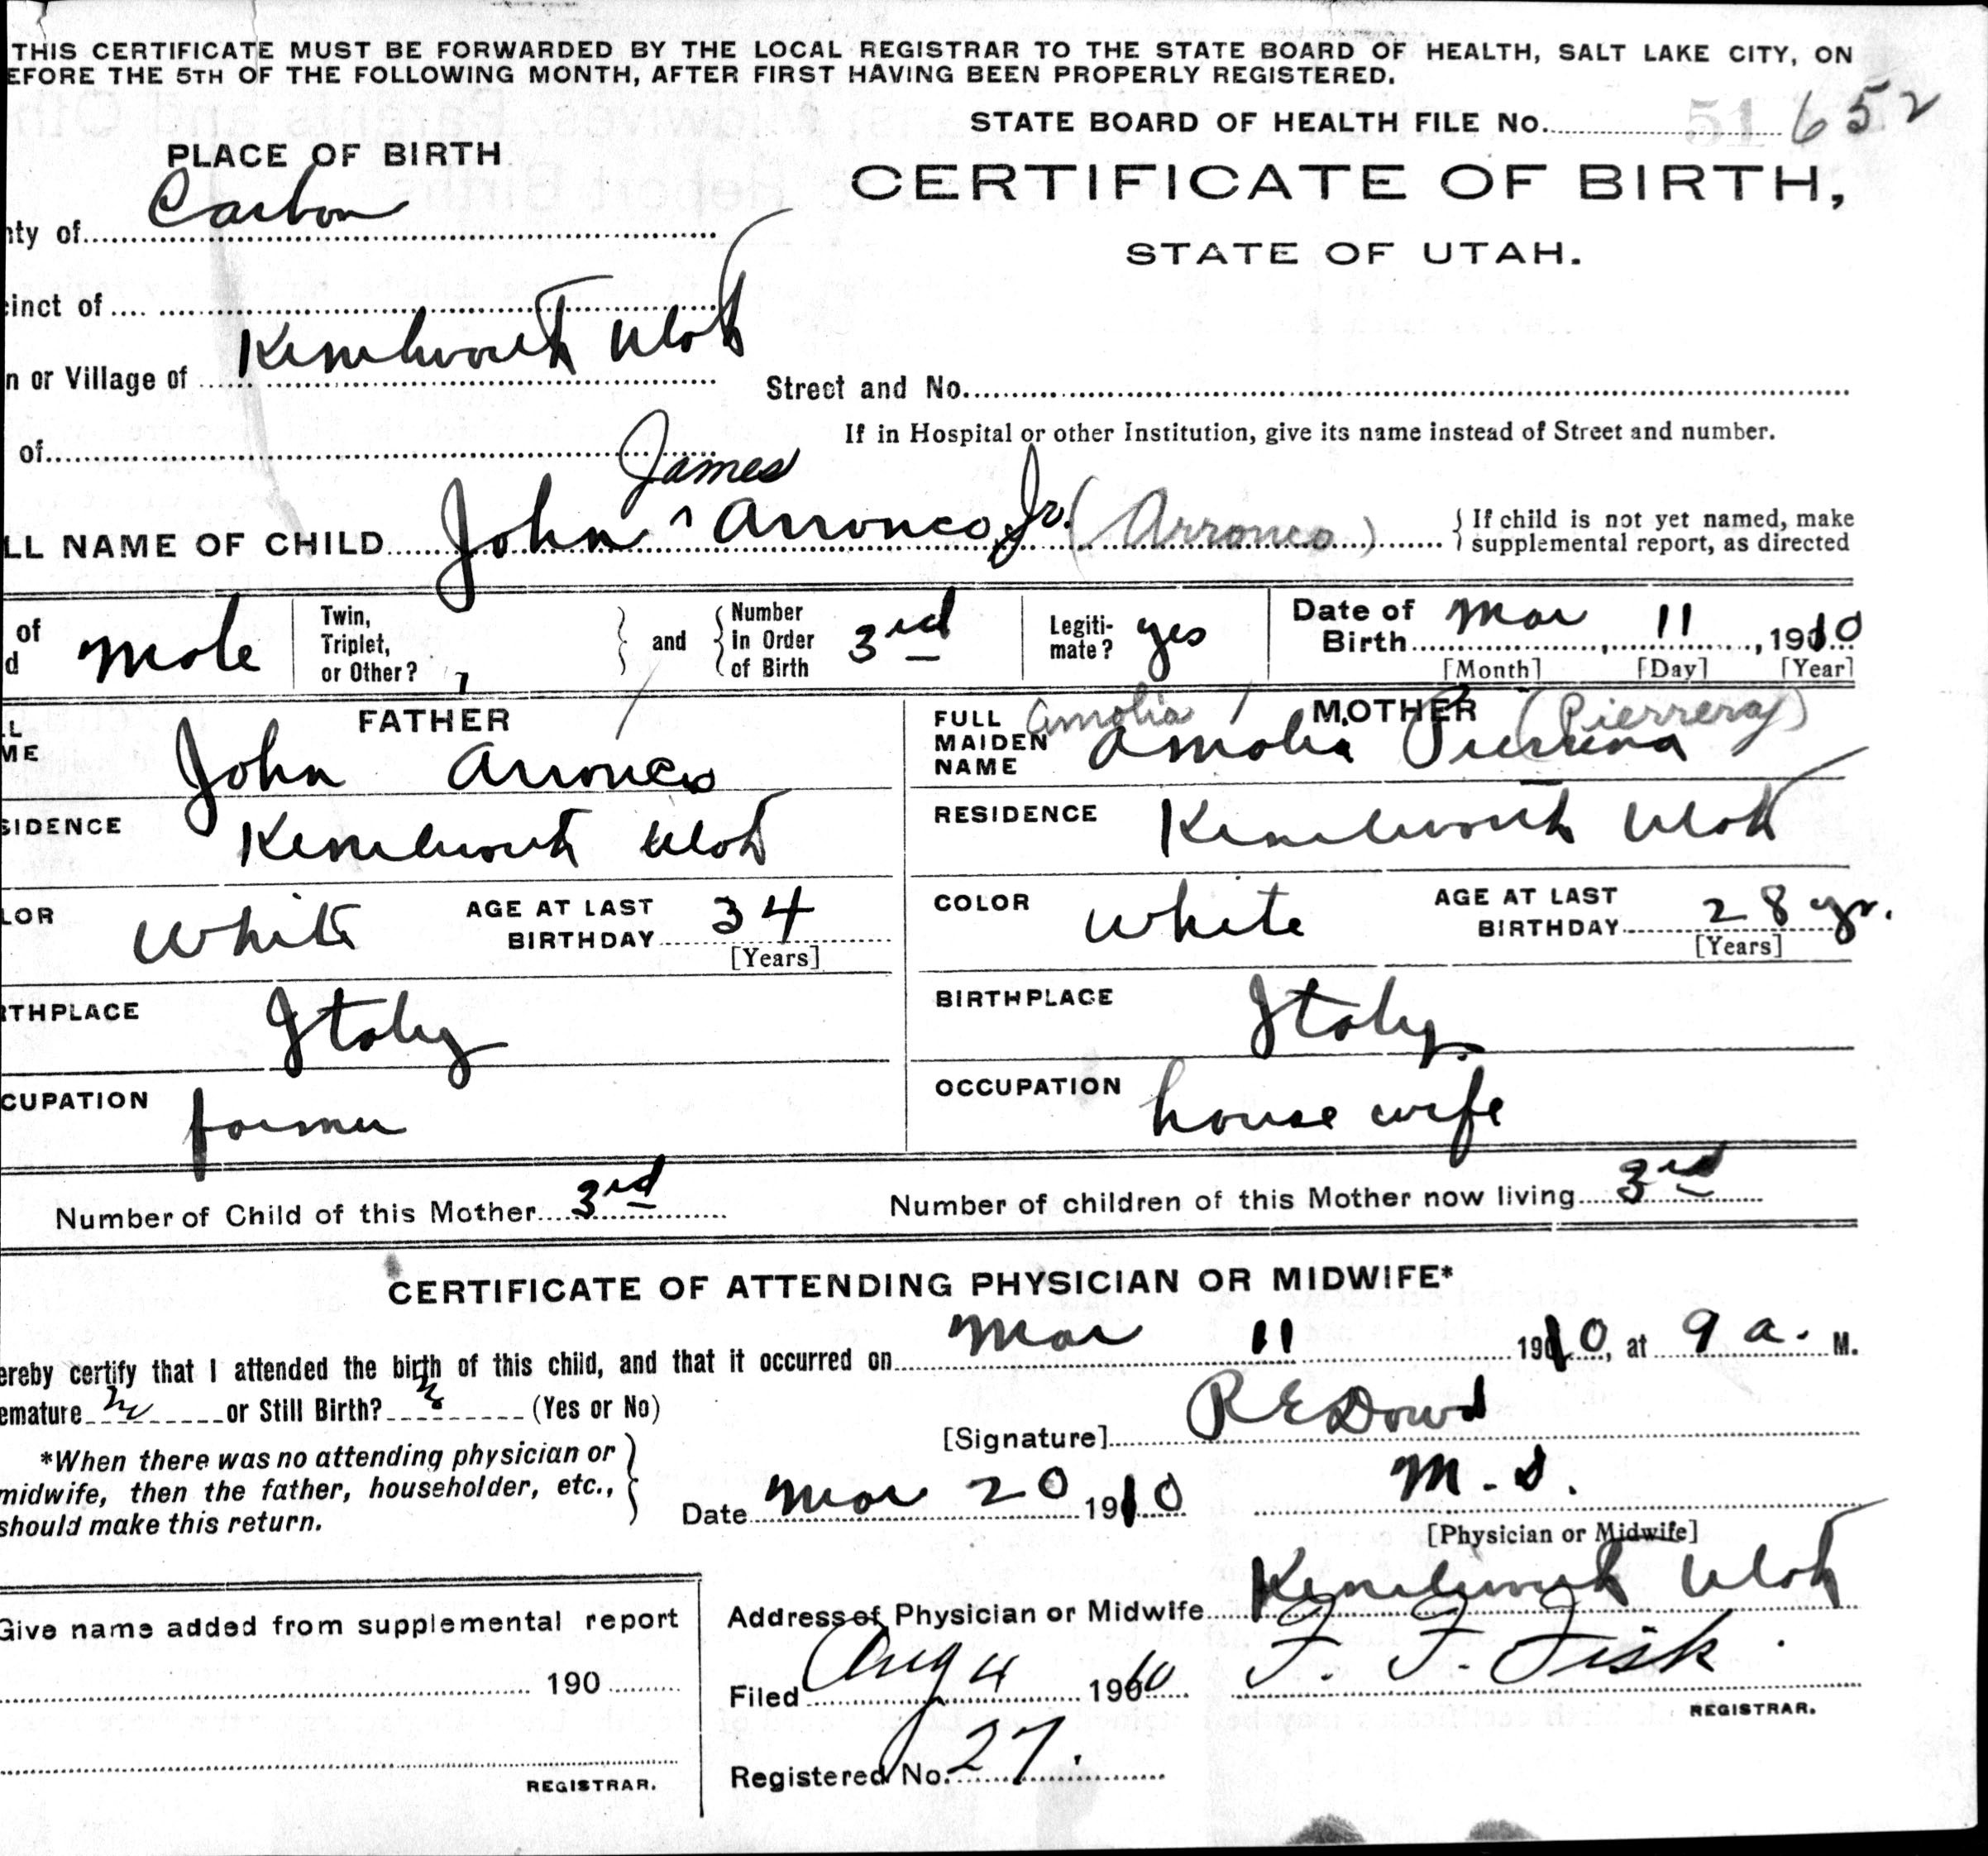 THIS CERTIFICATE MUST BE FORWARDED BY THE LOCAL REGISTRAR TO THE STATE BOARD OF HEALTH, SALT LAKE CITY, ON
EFORE THE 5TH OF THE FOLLOWING MONTH, AFTER FIRST HAVING BEEN PROPERLY REGISTERED.
STATE BOARD OF HEALTH FILE No. 51 652
PLACE OF BIRTH
CERTIFICATE OF BIRTH,
STATE OF UTAH.
nty of Carbon
cinct of
n or Village of Kenilworth Utah
Street and No.
of
If in Hospital or other Institution, give its name instead of Street and number.
James
LL NAME OF CHILD John ^ Arronco Jr. (Arronco)
If child is not yet named, make
supplemental report, as directed
of
d Male
Twin,
Triplet,
or Other?
and
Number
in Order
of Birth
3rd
Legiti-
mate? yes
Date of
Birth Mar 11, 1910
[Month] [Day] [Year]
FATHER
L
ME John Arronco
SIDENCE Kenilworth Utah
LOR White
AGE AT LAST
BIRTHDAY 34
[Years]
RTHPLACE Italy
CUPATION farmer
MOTHER
FULL
MAIDEN
NAME
Amolia (Pierrera)
Amolia Pierrera
RESIDENCE Kenilworth Utah
COLOR White
AGE AT LAST
BIRTHDAY 28 yr.
[Years]
BIRTHPLACE Italy
OCCUPATION house wife
Number of Child of this Mother 3rd
Number of children of this Mother now living 3rd
CERTIFICATE OF ATTENDING PHYSICIAN OR MIDWIFE*
ereby certify that I attended the birth of this child, and that it occurred on Mar 11 1910, at 9 a. M.
emature no or Still Birth? (Yes or No)
[Signature] R E Dowd
*When there was no attending physician or
midwife, then the father, householder, etc.,
should make this return.
Date Mar 20 1910
M. D.
[Physician or Midwife]
Address of Physician or Midwife Kenilworth Utah
Give name added from supplemental report
190
REGISTRAR.
Filed Aug 4 1910
F. F. Fisk.
REGISTRAR.
Registered No. 27.